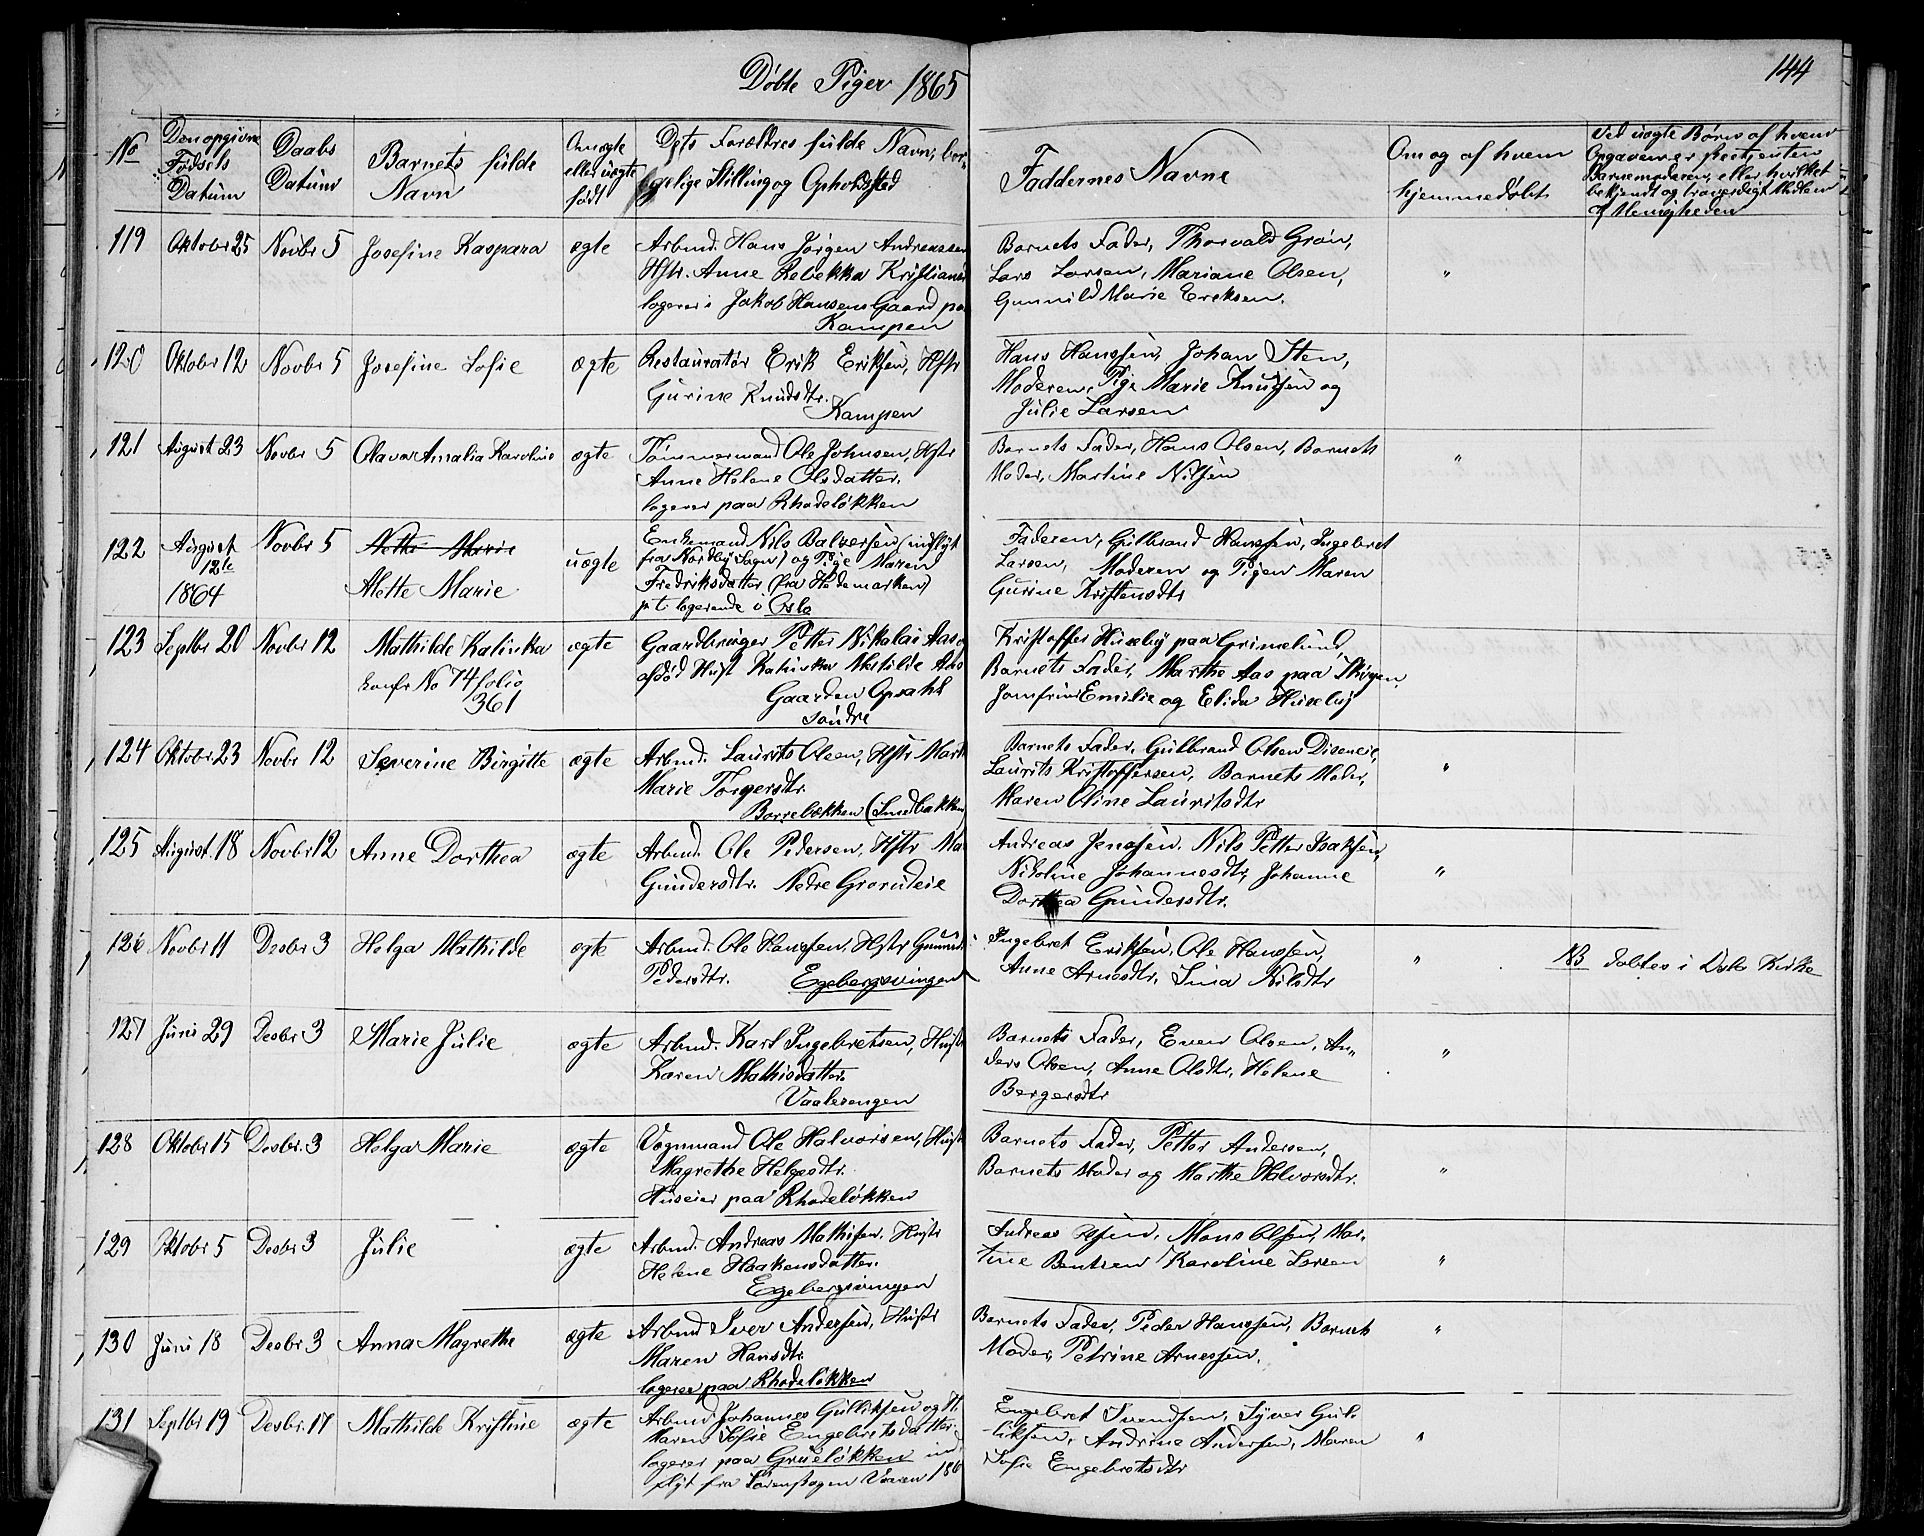 Døbte Piger 1865
144
No
Den opgivne Fødsels Datum
Daabs Datum
Barnets fulde Navn
Om ægte eller uægte født
Dets Forældres fulde Navn, borgelige Stilling og Opholdsted
Faddernes Navne
Om og af hvem hjemmedøbt
Ved uægte Børn af hvem Opgaven er skeet, enten Barnemoderen, eller hvilket bekjendt og troværdigt Medlem af Menigheden
119 Oktobr 25 Novbr 5 Josefine Kaspara ægte
Arbmd. Hans Jørgen Andreassen
Hstr. Anne Rebekka Kristians
logerer i Jakob Hansens Gaard paa
Kampen
Barnets Fader, Thorvald Grøn,
Lars Larsen, Mariane Olsen,
Gunnild Marie Ereksen.
"
120 Oktobr 12 Novbr 5 Josefine Sofie ægte
Restauratør Erik Eriksen, Hstr
Gurine Knudsdtr.
Kampen
Hans Hanssen, Johan Sten,
Moderen, Pige Marie Knutsen og
Julie Larsen
121 August 23 Novbr 5 Olava Amalia Karoline ægte
Tømmermand Ole Johnsen, Hstr
Anne Helene Olsdatter.
logerer paa Rhodeløkken
Barnets Fader, Hans Olsen, Barnets
Moder, Martine Nilsen
"
122 August 12te 1864 Novbr 5 Nette Marie
Alette Marie uægte
Enkemand Nils Balzersen (indflyt
fra Nordby Sogn) og Pige Maren
Fredriksdatter (fra Hedemarken)
p t. logerende i Oslo
Faderen, Gulbrand Hanssen, Ingebret
Larsen, Moderen og Pigen Maren
Gurine Kristensdtr
123 Septbr 20 Novbr 12 Mathilde Kalinka ægte
konfr No 74 folio
361
Gaardbruger Petter Nikolai Aas og
afdød Hust Katinka Matilde Aas
Gaarden Opsahl
søndre
Kristoffer Huseby paa Grimelund,
Barnets Fader, Marthe Aas paa Skøyen,
Jomfru Emilie og Elida Huseby
124 Oktobr 23 Novbr 12 Severine Birgitte ægte
Arbmd. Laurits Olsen, Hstr Marth
Marie Torgersdtr.
Borrebækken (Smedbakken
Barnets Fader, Gulbrand Olsen Diseneie,
Laurits Kristoffersen, Barnets Moder,
Maren Oline Lauritsdtr
"
125 August 18 Novbr 12 Anne Dorthea ægte
Arbmd. Ole Pedersen, Hstr Ma
Gundersdtr. Nedre Grorudeie
Andreas Jenssen, Nils Petter Isaksen,
Nikoline Johannesdtr, Johanne
Dorthea Gundersdtr.
"
126 Novbr 11 Desbr 3 Helga Mathilde ægte
Arbmd. Ole Hanssen, Hstr Gunnild
Pedersdtr. Egebergsvingen
Ingebret Eriksen, Ole Hanssen,
Anne Arnesdtr, Sina Nilsdtr
"
NB døbtes i Oslo Kirke
127 Juni 29 Desbr 3 Marie Julie ægte
Arbmd. Karl Ingebretsen, Hustr
Karen Mathisdatter.
Vaalerengen
Barnets Fader, Even Olsen, An-
ders Olsen, Anne Olsdtr, Helene
Bergersdtr
"
128 Oktobr 15 Desbr. 3 Helga Marie ægte
Vognmand Ole Halvorsen, Hustr
Magrethe Helgesdtr.
Huseier paa Rhodeløkken
Barnets Fader, Petter Andersen,
Barnets Moder og Marthe Halvorsdtr.
"
129 Oktobr 5 Desbr 3 Julie ægte
Arbmd. Andreas Mathisen, Hustr
Helene Haakensdatter.
Egebergsvingen
Andreas Olsen, Mons Olsen, Mar-
tine Bentsen Karoline Larsen
"
130 Juni 18 Desbr 3 Anna Magrethe ægte
Arbmd Iver Andersen, Hustr
Maren Hansdtr.
logerer paa Rhodeløkken
Barnets Fader, Peder Hanssen, Barnets
Moder, Petrine Arnessen.
"
131 Septbr 19 Desbr. 17 Mathilde Kristine ægte
Arbmd. Johannes Gulliksen og H.
Maren Sofie Engebretsdatter,
logerer paa Grueløkken ind
flyt fra Sørensogen Vaaren 186
Engebret Svendsen, Syver Gul-
liksen, Andrine Andersen, Maren
Sofie Engebretsdtr
"